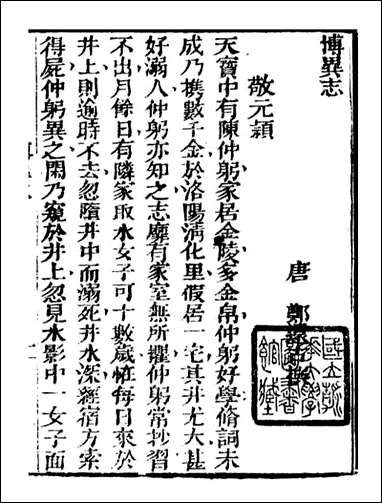 博異志
唐　鄭
敬元頴
天寶中有陳仲躬家居金陵多金帛仲躬好學脩詞未
成乃携數千金於洛陽淸化里假居一宅其井尤大甚
好溺人仲躬亦知之志靡有家室無所懼仲躬常抄習
不出月餘日有隣家取水女子可十數歲怪每日來於
井上則逾時不去忽墮井中而溺死井水深經宿方索
得屍仲躬異之閑乃窺於井上忽見水影中一女子面